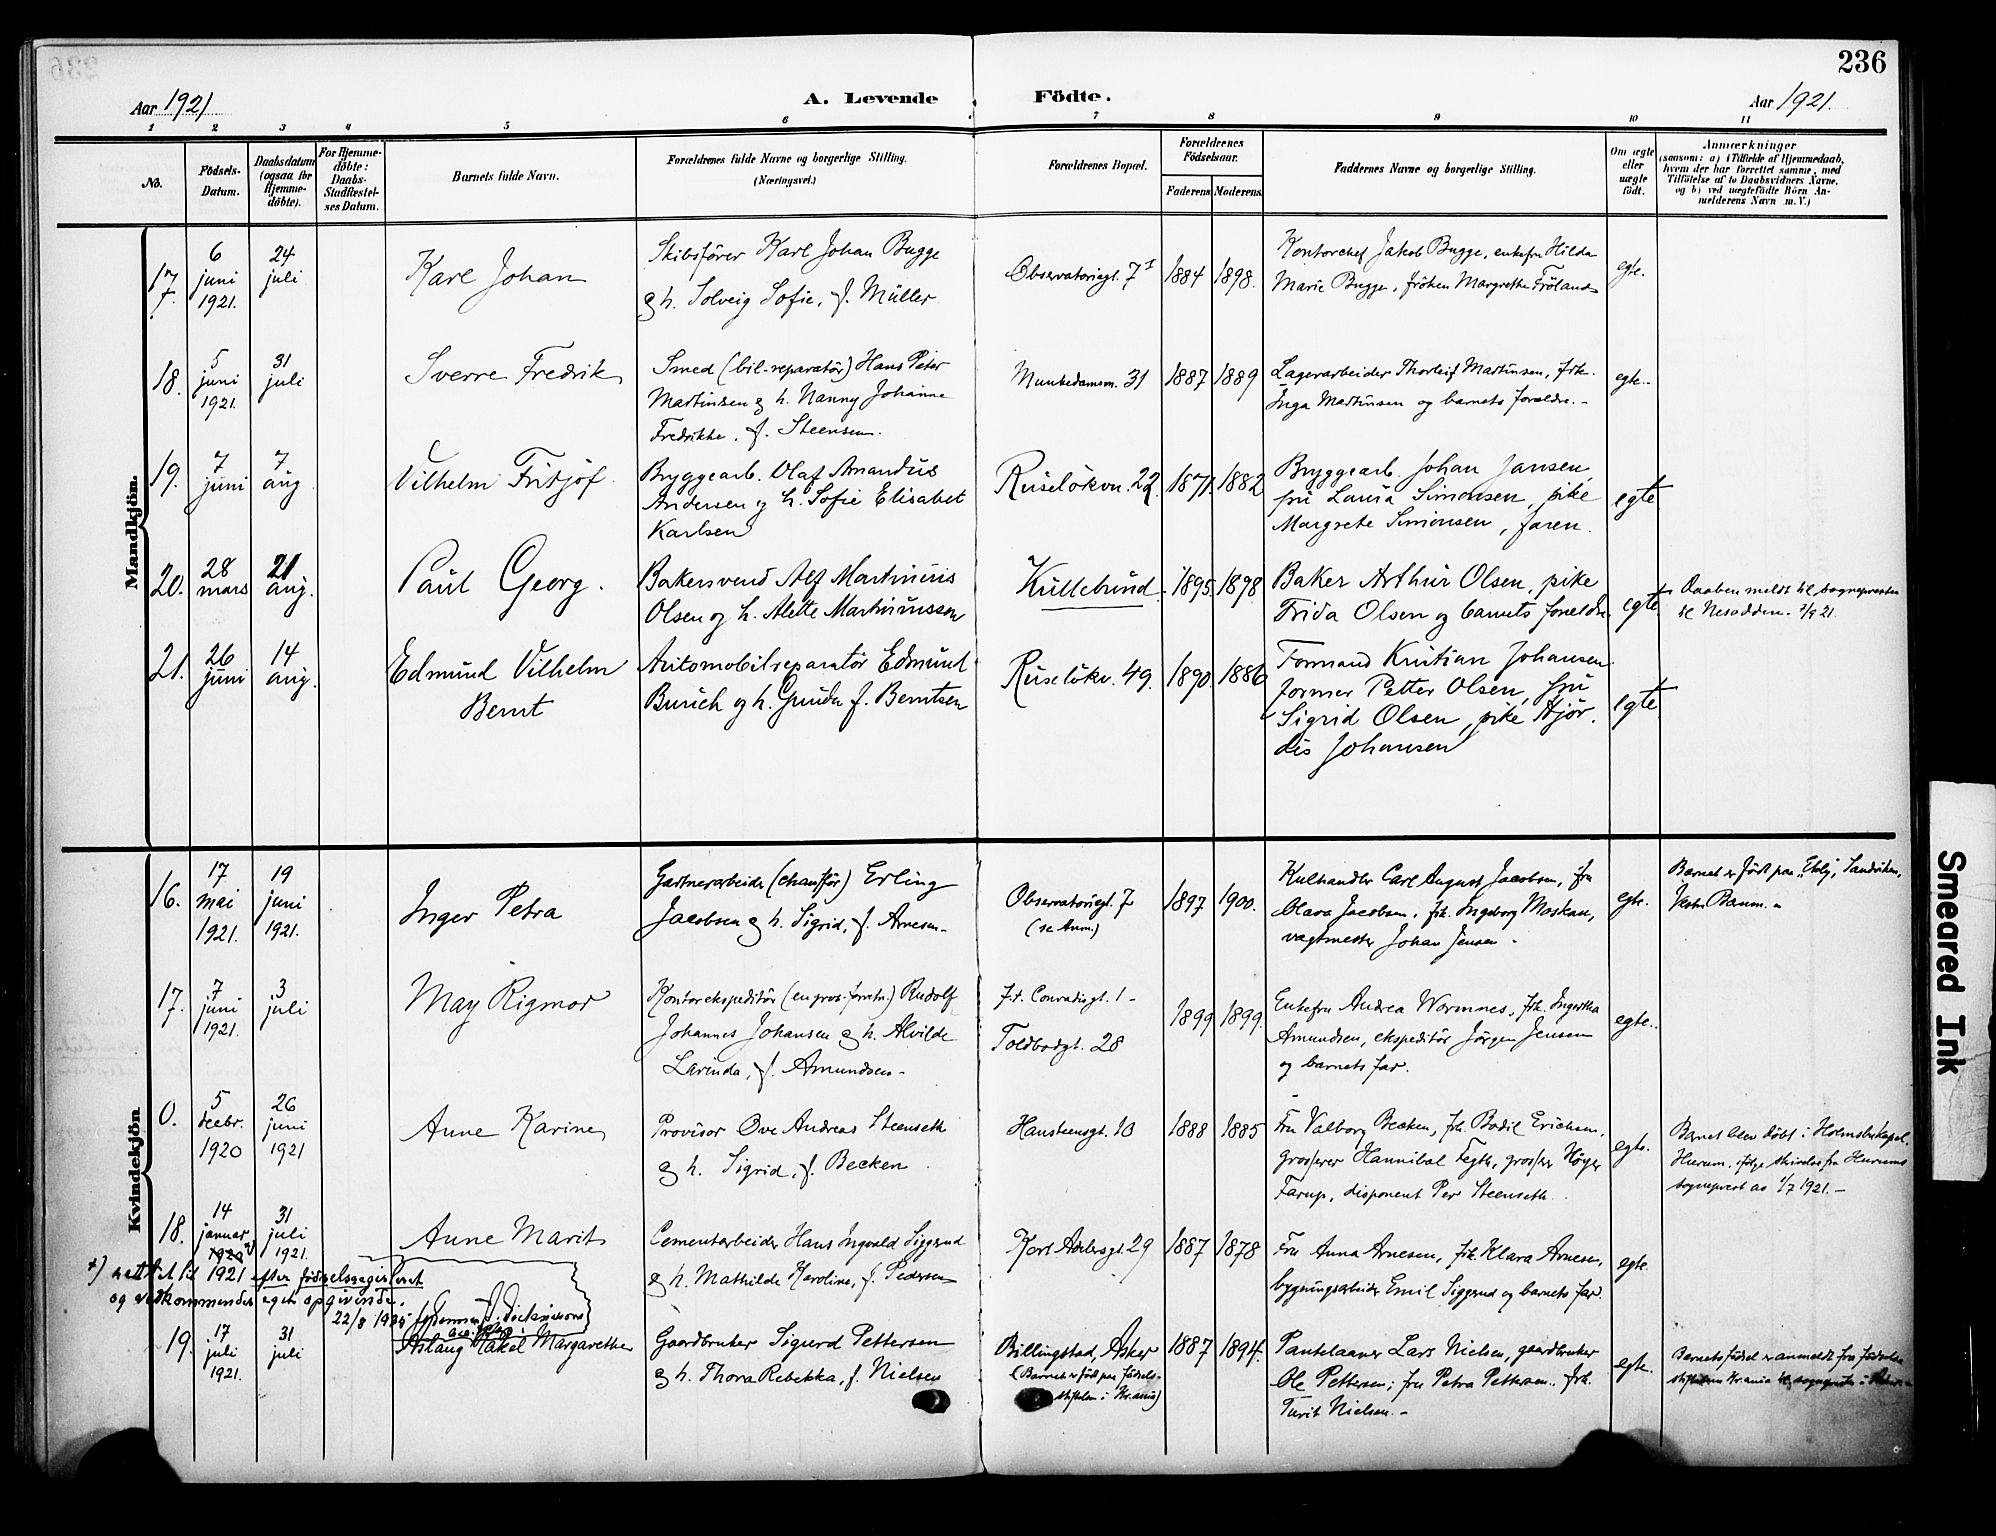 236
Aar 1921
A. Levende Födte.
Aar 1921.
1 2 3 4 5 6 7 8 9 10 11
No.
Födsels-
Datum.
Daabsdatum
(ogsaa for
Hjemme-
döbte).
For Hjemme-
döbte:
Daabs-
Stadfestel-
ses Datum.
Barnets fulde Navn.
Forældrenes fulde Navne og borgerlige Stilling.
(Næringsvei.)
Forældrenes Bopæl.
Forældrenes
Födselsaar.
Faderens. Moderens.
Faddernes Navne og borgerlige Stilling.
Om ægte
eller
uægte
födt.
Anmærkninger
(saasom: a) i Tilfælde af Hjemmedaab,
hvem der har forrettet samme, med
Tilföielse af to Daabsvidners Navne.
og b) ved uægtefödte Börn An-
melderens Navn m. V.)
Mandkjön.
17.
6
juni
1921.
24
juli
Karl Johan
Skibsfører Karl Johan Bugge
og h. Solveig Sofie, f. Müller
Observatoriegt. 7 I
1884
1898.
Kontorchef Jakob Bugge, enkefru Hilda
Marie Bugge, frøken Margrethe Fröland
egte.
18.
5
juni
1921.
31
juli
Sverre Fredrik
Smed (bil-reparatør) Hans Peter
Martinsen og h. Nanny Johanne
Fredrikke, f. Steensen.
Munkedamsv. 31
1887
1889
Lagerarbeider Thorleif Martinsen, frk.
Inga Martinsen og barnets forældre. -
egte.
19.
7
juni
7
aug
Vilhelm Fritjof
Bryggearb. Olaf Amandus
Andersen og h. Sofie Elisabet
Karlsen
Ruseløkvn. 22.
1871.
1882
Bryggearb Johan Jansen,
fru Laura Simonsen, pike
Margrete Simonsen, faren.
egte
20.
28
mars
21
aug.
Paul Georg.
Bakersvend Alf Martinius
Olsen og h. Alette Martiniussen
Kullebund.
1895
1898
Baker Arthur Olsen, pike
Frida Olsen og barnets forældre
egte
Daaben meldt til sognepresten
til Nesodden. 7/9 21.
21.
26
juni
14
aug.
Edmund Vilhelm
Bernt
Automobilreparatør Edmund
Burich og h. Gunda f. Berntsen
Ruseløkv. 49.
1890.
1886
Formand Kristian Johansen
former Petter Olsen, fru
Sigrid Olsen, pike Hjør-
dis Johansen
egte
Kvindekjön.
16.
17
mai
1921.
19
juni
1921.
Inger Petra
Gartnerarbeider (chauffør) Erling
Jacobsen og h. Sigrid, f. Arnesen-
Observatoriegt. 7
(se Anm.)
1897
1900.
Kulhandler Carl August Jacobsen, fru
Olava Jacobsen, frk. Ingeborg Moskau,
vagtmester Johan Jensen -
egte.
Barnet er født paa "Ebly", Sandviken,
Vestre Bærum. -
17.
7
juni
1921.
3
juli
May Rigmor
Kontorekspeditör (en gros-forretn.) Rudolf
Johannes Johansen og h. Alvilde
Lavinda, f. Amundsen-
Frd. Conradisgt. 1 -
Toldbodgt. 28
1899
1899.
Enkefru Andrea Wormnes, frk. Ingertha
Amundsen, ekspeditör Jörgen Jensen
og barnets far.
egte.
0.
5
decbr.
1920
26
juni
1921
Anne Karine
Provisor Ove Andreas Steenseth
og h. Sigrid, f. Becken
Hansteensgt. 10
1888
1885
Fru Valborg Becken, frk. Bodil Erichsen,
grosserer Hannibal Fegth, grosserer Höyer
Farup, disponent Per Steenseth.
egte.
Barnet blev døbt i Holmsbu kapel.
Hurum, ifølge skrivelse fra Hurums
sogneprest av 1/7 1921. -
18.
14
januar
1920 x)
31
juli
1921.
Anne Marit
Cementarbeider Hans Ingvald Siggerud
og h. Mathilde Karoline, f. Pedersen
Kort Adelersgt. 29
1887
1878
Fru Anna Arnesen, frk. Klara Arnesen,
bygningsarbeider Emil Siggerud og barnets far.
egte.
x) rettet til 1921 efter fødselsregisteret
og vedkommendes egen opgivende.
22/8 1935
19.
17
juli
1921.
31
juli
Aslaug Rakel Margarethe
Gaardbruker Sigurd Pettersen
og h. Thora Rebekka, f. Nielsen
Billingstad, Asker
(Barnet er født paa Fødsels-
stiftelsen i Kr.ania)
1887
1894.
Pantelaaner Lars Nielsen, gaardbruker
Ole Pettersen; fru Petra Pettersen. frk.
Turit Nielsen. -
egte.
Barnets fødsel er anmeldt fra fødsels-
stiftelsen Kr.ania til sognepresten i Asker. -
Smeared Ink